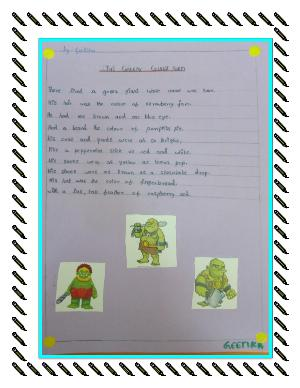 By Geetika
The Green Giant Sam
There lived a green giant whose name was Sam.
His hair was the colour of strawberry jam.
He had one brown and one blue eye.
And a beard the colour of pumpkin pie.
His coat and pants were oh so bright,
like a peppermint stick in red and white.
His were as yellow as lemon pop.
His shoes were as brown as a chocolate drop.
His hat was the color of gingerbread.
with a tall, tall feather of raspberry red.
GEETIKA